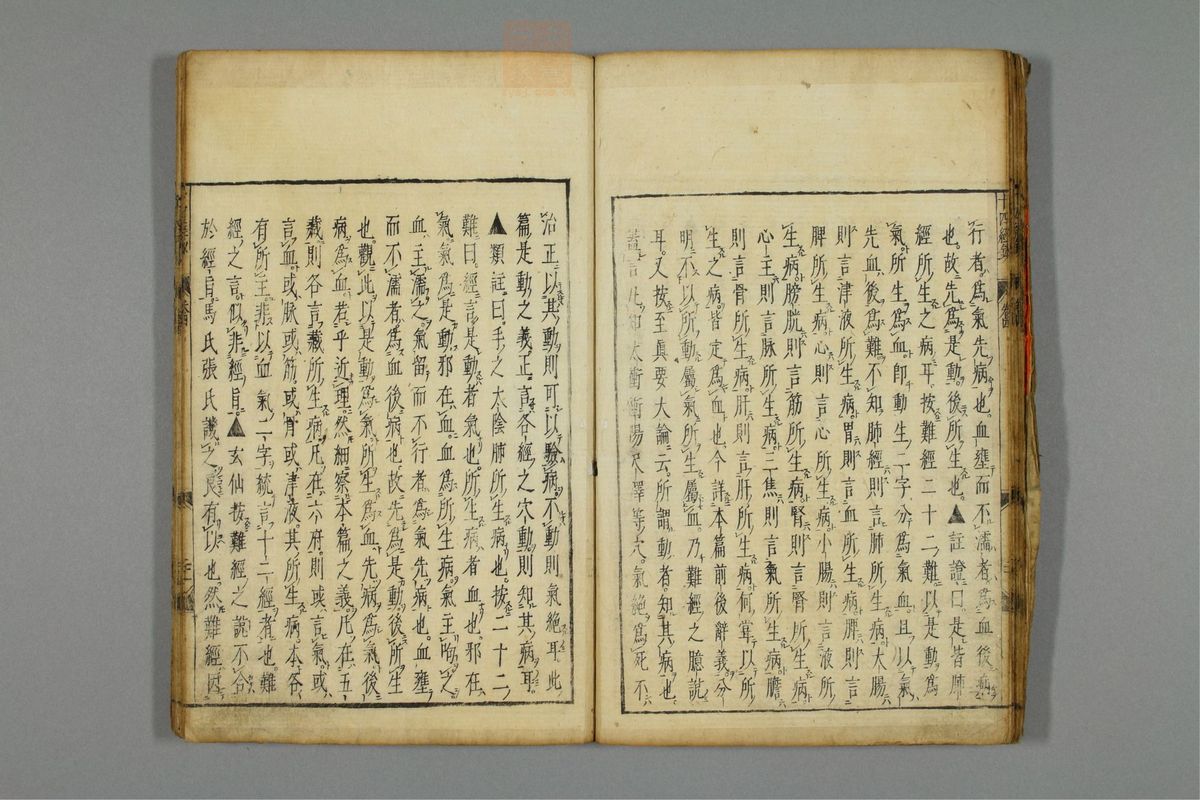 行者爲氣先病也血壅而不濡者爲血後病
也故先爲是動後所生也▲註證曰是皆肺
經所生之病耳按難經二十二難以是動爲
氣所生爲血卽動生二字分爲氣血且以氣
先血後爲難不知肺經則言肺所生病大腸
則言津液所生病胃則言血所生病脾則言
脾所生病心則言心所生病小腸則言液所
生病膀胱則言筋所生病腎則言腎所生病
心主則言脉所生病三焦則言氣所生病膽
則言骨所生病肝則言肝所生病何嘗以所
生之病皆定爲血也今詳本篇前後辭義分
明不以所動屬氣所生屬血乃難經之臆說
耳又按至眞要大論云所謂動者知其病也
蓋言凡知太衝衝陽尺澤等穴氣絶爲死不
治正以其動則可以驗病不動則氣絶耳此
篇是動之義正言各經之穴動則知其病耳
▲類註曰手之太陰肺所生病也按二十二
難曰經言是動者氣也所生病者血也邪在
氣氣爲是動邪在血血爲所生病氣主呴之
血主濡之氣留而不行者爲氣先病也血壅
而不濡者爲血後病也故先爲是動後所生
也觀此以是動爲氣所生爲血先病爲氣後
病爲血若乎近理然細察本篇之義凡在五
藏則各言藏所生病凡在六府則或言氣或
言血或脉或筋或骨或津液其所生病本各
有所主非以血氣二字統言十二經者也難
經之言似非經旨▲玄仙按難經之說不合
於經旨馬氏張氏譏之良有以也然難經因